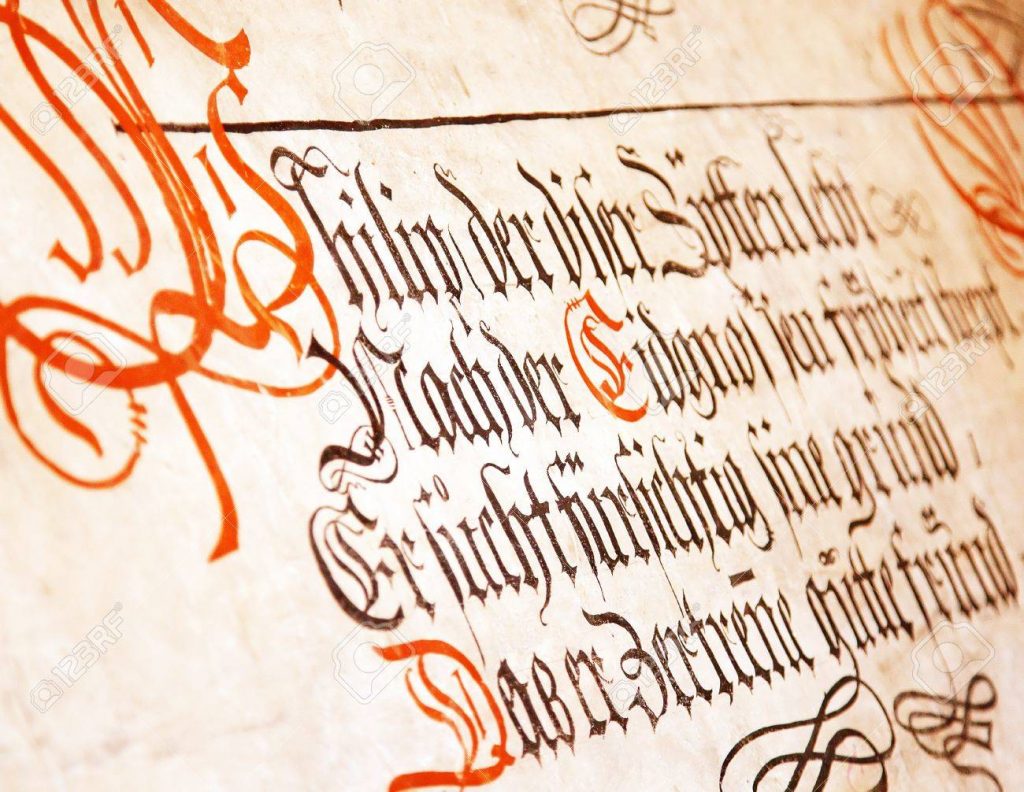 Philip der diser Zÿtten lebt
Nach der Eidgnossen frÿheit
Er sůcht fürsichtig sine gründ
Das er Zertren̄e gůtte fründ
123RF